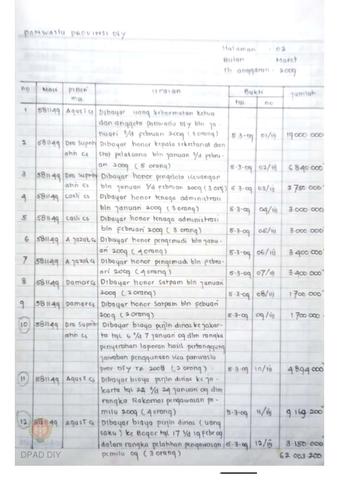 PANWASLU PROVINSI DIY
Halaman : 02
Bulan : Maret
Th anggaran : 2009
no MAK URAIAN Bukti Jumlah
tgl no
1 581149 Agus Cs Dibayar uang kehormatan ketua
dan anggota panwaslu DIY bln ja-
nuari s/d pebruari 2009 (3 orang) 5-3-09 01/III 19 000 000
2 581149 Dra Suprih Dibayar honor kepala sekretariat dan
atin cs staf pelaksana bln januari s/d pebru-
ari 2009 (5 orang) 5-3-09 02/III 6 840 000
3 581149 Dra Suprih Dibayar honor pengelola keuangan
atin cs bln januari s/d februari 2009 (3 org) 5-3-09 03/III 2 750 000
4 581149 cs Dibayar honor tenaga administrasi
bln januari 2009 (3 orang) 5-3-09 04/III 3 000 000
5 581149 cs Dibayar honor tenaga administrasi
bln februari 2009 (3 orang) 5-3-09 05/III 3 000 000
6 581149 Dibayar honor pengemudi bln janu-
ari 2009 (4 orang) 5-3-09 06/III 3 400 000
7 581149 Dibayar honor pengemudi bln febru-
ari 2009 (4 orang) 5-3-09 07/III 3 400 000
8 581149 Damar Cs Dibayar honor satpam bln januari
2009 (2 orang) 5-3-09 08/III 1 700 000
9 581149 Damar Cs Dibayar honor satpam bln pebuari
2009 (2 orang) 5-3-09 09/III 1 700 000
10 581149 Dra Suprih Dibayar biaya perjln dinas ke jakar-
atin cs ta tgl 6 s/d 7 januari 09 dlm rangka
penyerahan laporan hasil pertanggung
jawaban penggunaan keu panwaslu
prov DIY TA 2008 (2 orang) 5-3-09 10/III 4 894 000
11 581149 Agus Cs Dibayar biaya perjln dinas ke ja-
karta tgl 22 s/d 24 januari 09 dlm
rangka Rakornas pengawasan pe-
milu 2009 (4 orang) 5-3-09 11/III 9 169 200
12 581149 Agus Cs Dibayar biaya perjln dinas (uang
saku) ke Bogor tgl 17 s/d 19 feb 09
dalam rangka pelatihan pengawasan 5-3-09 12/III 3 150 000
pemilu 09 (3 orang) 62 003 200
DPAD DIY